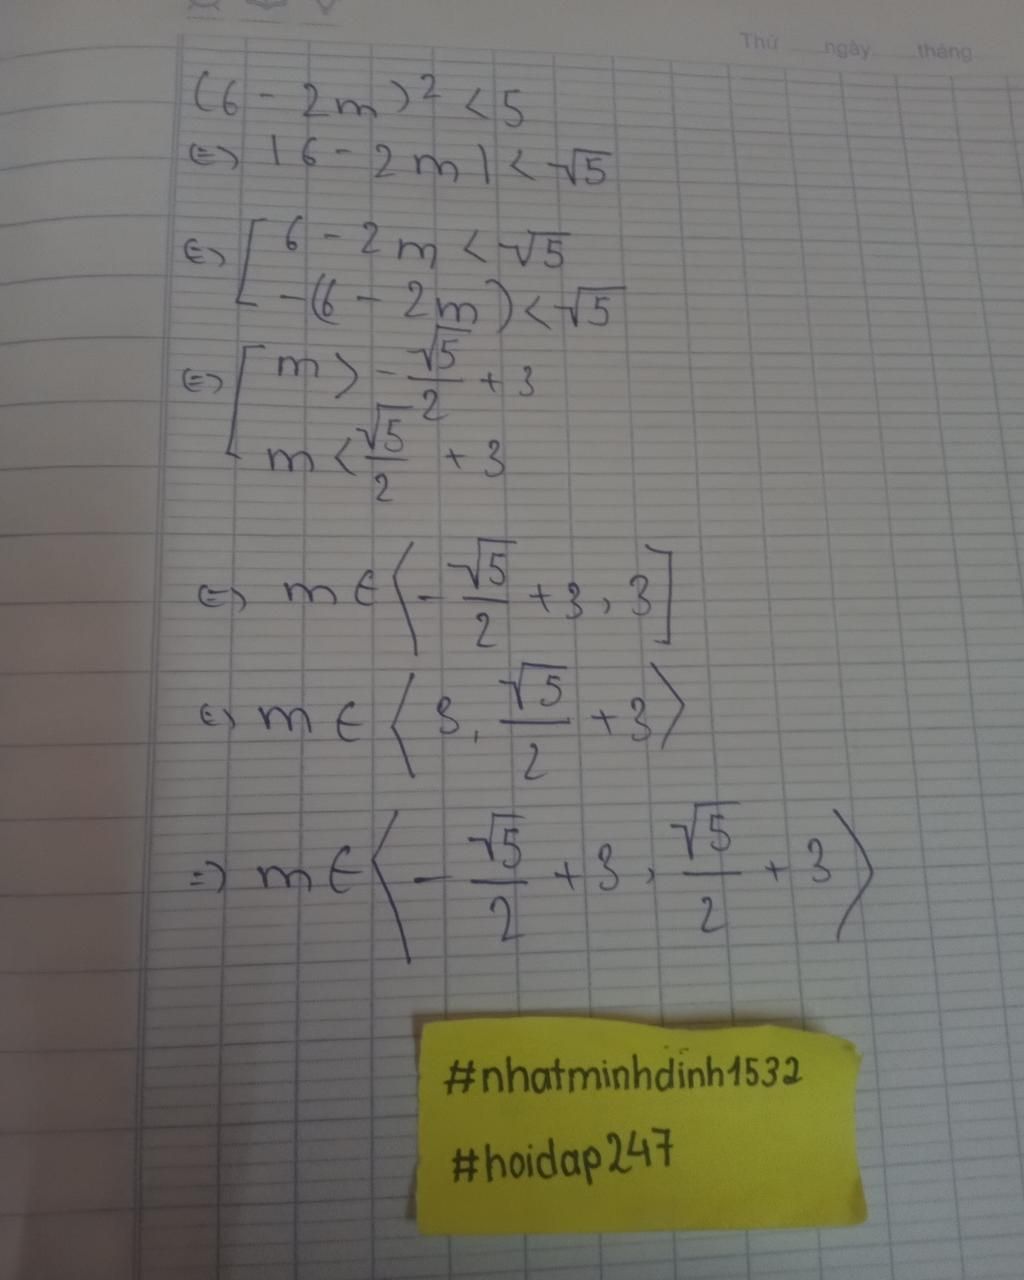 Thứ ngày tháng
(6 - 2m)² < 5
⇔ |6 - 2m| < √5
⇔ [ 6 - 2m < √5
-(6 - 2m) < √5
⇔ [ m > -√5/2 + 3
m < √5/2 + 3
⇔ m ∈ ⟨-√5/2 + 3, 3]
⇔ m ∈ ⟨3, √5/2 + 3⟩
⇒ m ∈ ⟨-√5/2 + 3, √5/2 + 3⟩
#nhatminhdinh1532
#hoidap247